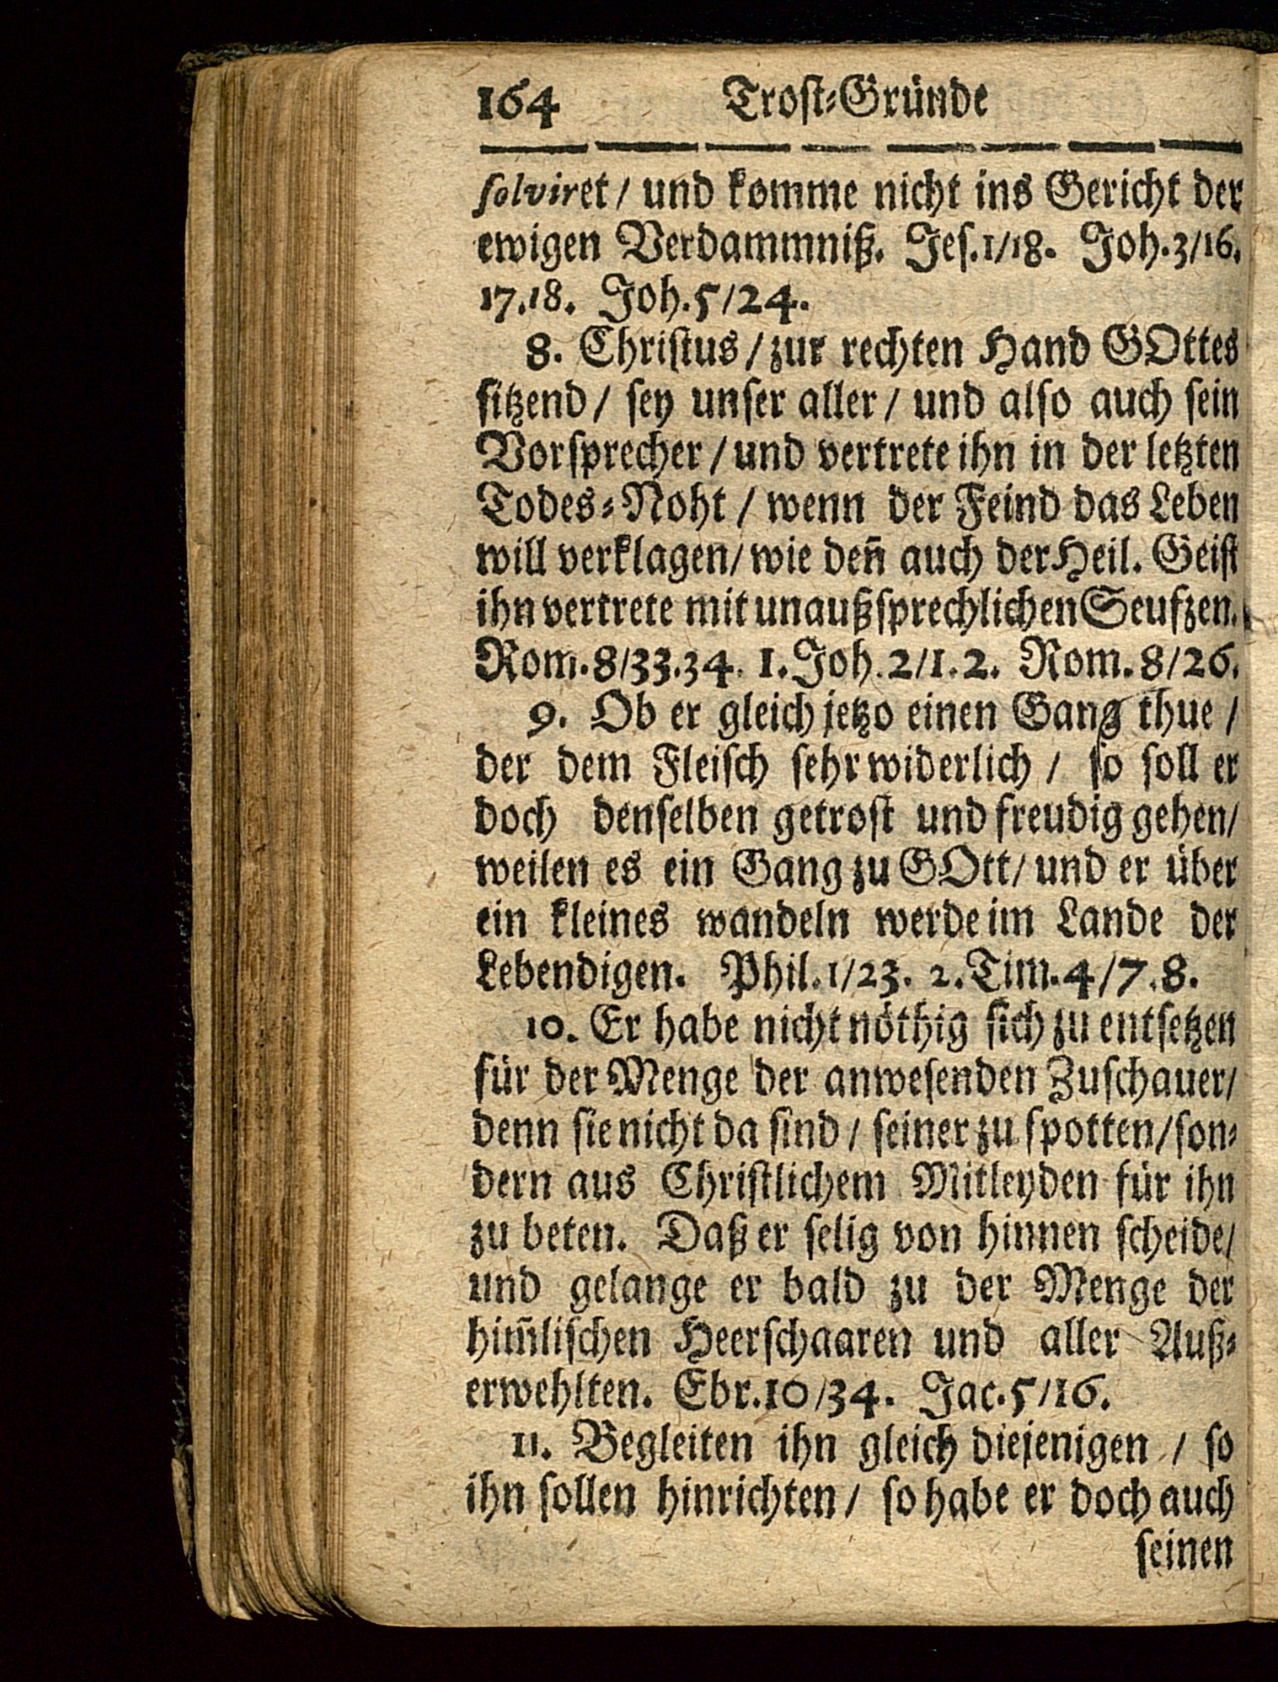 164 Trost-Gründe
solviret / und komme nicht ins Gericht der
ewigen Verdammniß. Jes.1/18. Joh.3/16.
17.18. Joh.5/24.
8. Christus / zur rechten Hand GOttes
sitzend / sey unser aller / und also auch sein
Vorsprecher / und vertrete ihn in der letzten
Todes-Noht / wenn der Feind das Leben
will verklagen / wie deñ auch der Heil. Geist
ihn vertrete mit unaußsprechlichen Seufzen.
Rom.8/33.34. 1.Joh.2/1.2. Rom.8/26.
9. Ob er gleich jetzo einen Gang thue /
der dem Fleisch sehr widerlich / so soll er
doch denselben getrost und freudig gehen/
weilen es ein Gang zu GOtt / und er über
ein kleines wandeln werde im Lande der
Lebendigen. Phil.1/23. 2.Tim.4/7.8.
10. Er habe nicht nöthig sich zu entsetzen
für der Menge der anwesenden Zuschauer/
denn sie nicht da sind / seiner zu spotten / son-
dern aus Christlichem Mitleyden für ihn
zu beten. Daß er selig von hinnen scheide/
und gelange er bald zu der Menge der
him̃lischen Heerschaaren und aller Auß-
erwehlten. Ebr.10/34. Jac.5/16.
11. Begleiten ihn gleich diejenigen / so
ihn sollen hinrichten / so habe er doch auch
seinen